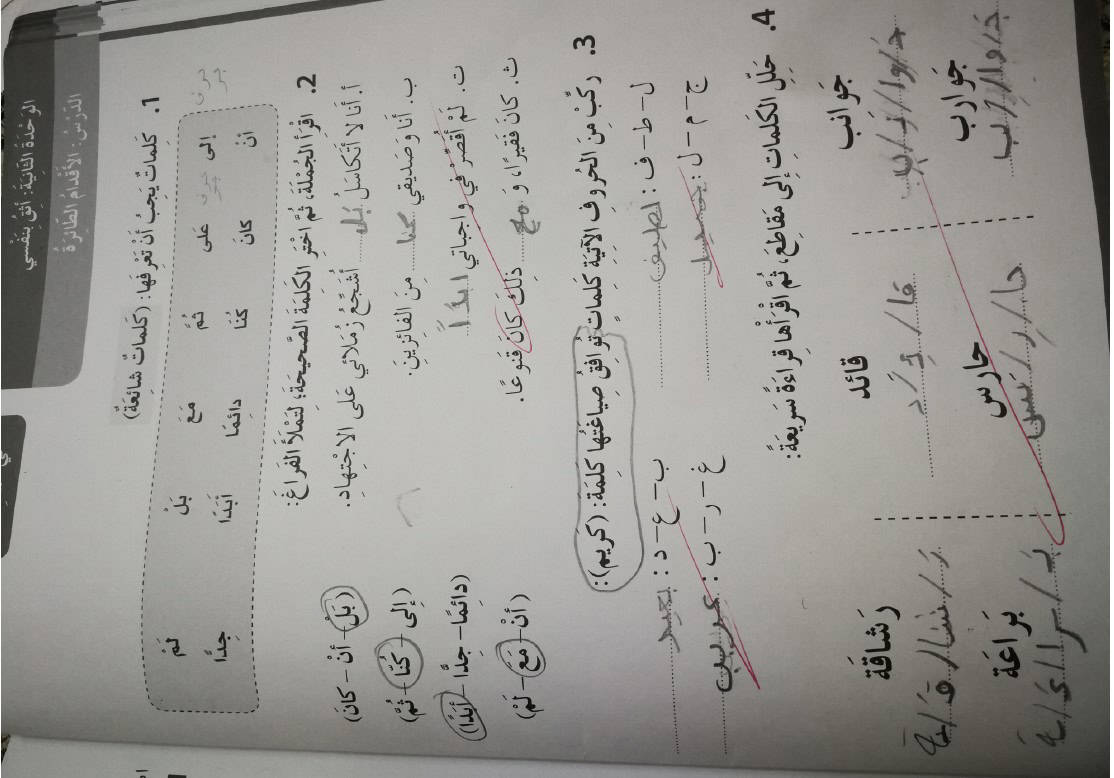 الوَحْدَةُ الثّانِيَةُ: أَثِقُ بِنَفْسي
الدَّرْسُ: الأَقْدامُ الطّائِرَةُ
1. كَلِماتٌ يَجِبُ أَنْ تَعْرِفَها: (كَلِماتٌ شائِعَةٌ)
إِلى عَلى ثُمَّ مَعَ بَلْ لَمْ
أَنْ كانَ كُنّا دائِمًا أَبَدًا جِدًّا
2. اقْرَأِ الجُمْلَةَ، ثُمَّ اخْتَرِ الكَلِمَةَ الصَّحيحَةَ؛ لِتَمْلَأَ الفَراغَ:
أ. أَنا لا أَتَكاسَلُ بل أُشَجِّعُ زُمَلائي عَلى الاجْتِهادِ. (بَلْ - أَنْ - كانَ)
ب. أَنا وَصَديقي كنا مِنَ الفائِزينَ. (إِلى - كُنّا - ثُمَّ)
ت. لَمْ أُقَصِّرْ في واجِباتي ابداً (دائِمًا - جِدًّا - أَبَدًا)
ث. كانَ فَقيرًا، وَ مع ذلِكَ كانَ قَنوعًا. (أَنْ - مَعَ - لَمْ)
3. رَكِّبْ مِنَ الحُروفِ الآتِيَةِ كَلِماتٍ تُوافِقُ صِياغَتُها كَلِمَةَ: (كَريم):
ل - ط - ف : لطيف ب - ع - د : بعيد
ج - م - ل : جميل غ - ر - ب : غريب
4. حَلِّلِ الكَلِماتِ إِلى مَقاطِعَ، ثُمَّ اقْرَأْها قِراءَةً سَريعَةً:
جَوانِب قائِد رَشاقَة
جَ/وا/نِ/ب قا/ئِ/د رَ/شا/قَ/ة
جَوارِب حارِس بَراعَة
جَ/وا/رِ/ب حا/رِ/س بَ/را/عَ/ة